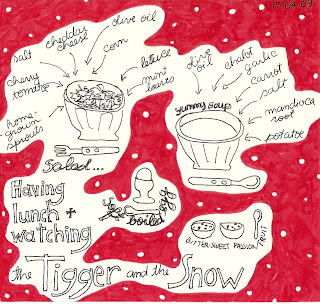 cheddar cheese
olive oil
corn
salt
lettuce
mini leaves
cherry tomatoes
home-grown sprouts
Salad...
olive oil
chalot
garlic
carrot
salt
mandioca root
potatoe
yummy soup
boiled egg
BITTER-SWEET PASSION FRUIT
Having
lunch +
watching
the Tigger and the Snow